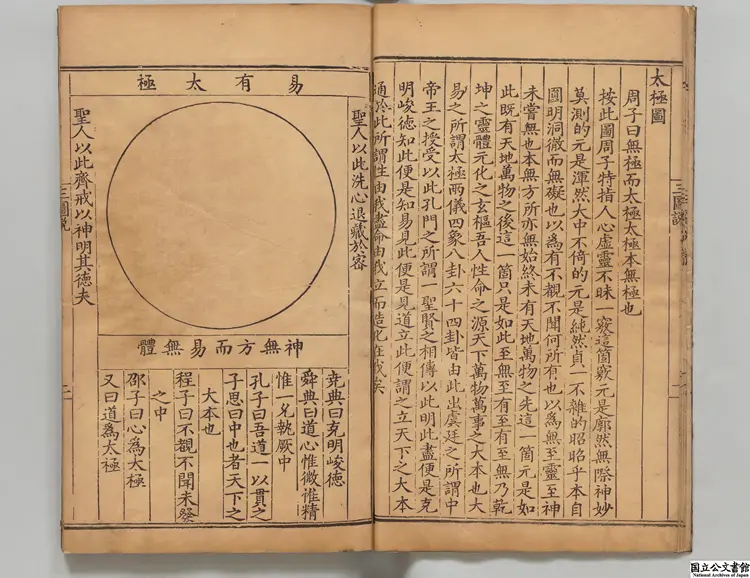 太極圖
周子曰無極而太極太極本無極也
按此圖周子特指人心虛靈不昧一竅這箇竅元是廓然無際神妙
莫測的元是渾然大中不倚的元是純然貞一不雜的昭昭乎本自
圓明洞微而無礙也以爲有不覩不聞何所有也以爲無至靈至神
未嘗無也本無方所亦無始終未有天地萬物之先這一箇元是如
此既有天地萬物之後這一箇只是如此至無至有至有至無乃乾
坤之靈體元化之玄樞吾人性命之源天下萬物萬事之大本也大
易之所謂太極兩儀四象八卦六十四卦皆由此出虞廷之所謂中
帝王之授受以此孔門之所謂一聖賢之相傳以此明此盡便是克
明峻德知此便是知易見此便是見道立此便謂之立天下之大本
通於此所謂性由我盡命由我立而造化在我矣
三圖說
易有太極
聖人以此洗心退藏於密
聖人以此齊戒以神明其德夫
神無方而易無體
堯典曰克明峻德
舜典曰道心惟微惟精
惟一允執厥中
孔子曰吾道一以貫之
子思曰中也者天下之
大本也
程子曰不覩不聞未發
之中
邵子曰心爲太極
又曰道爲太極
三圖說
二
国立公文書館
National Archives of Japan